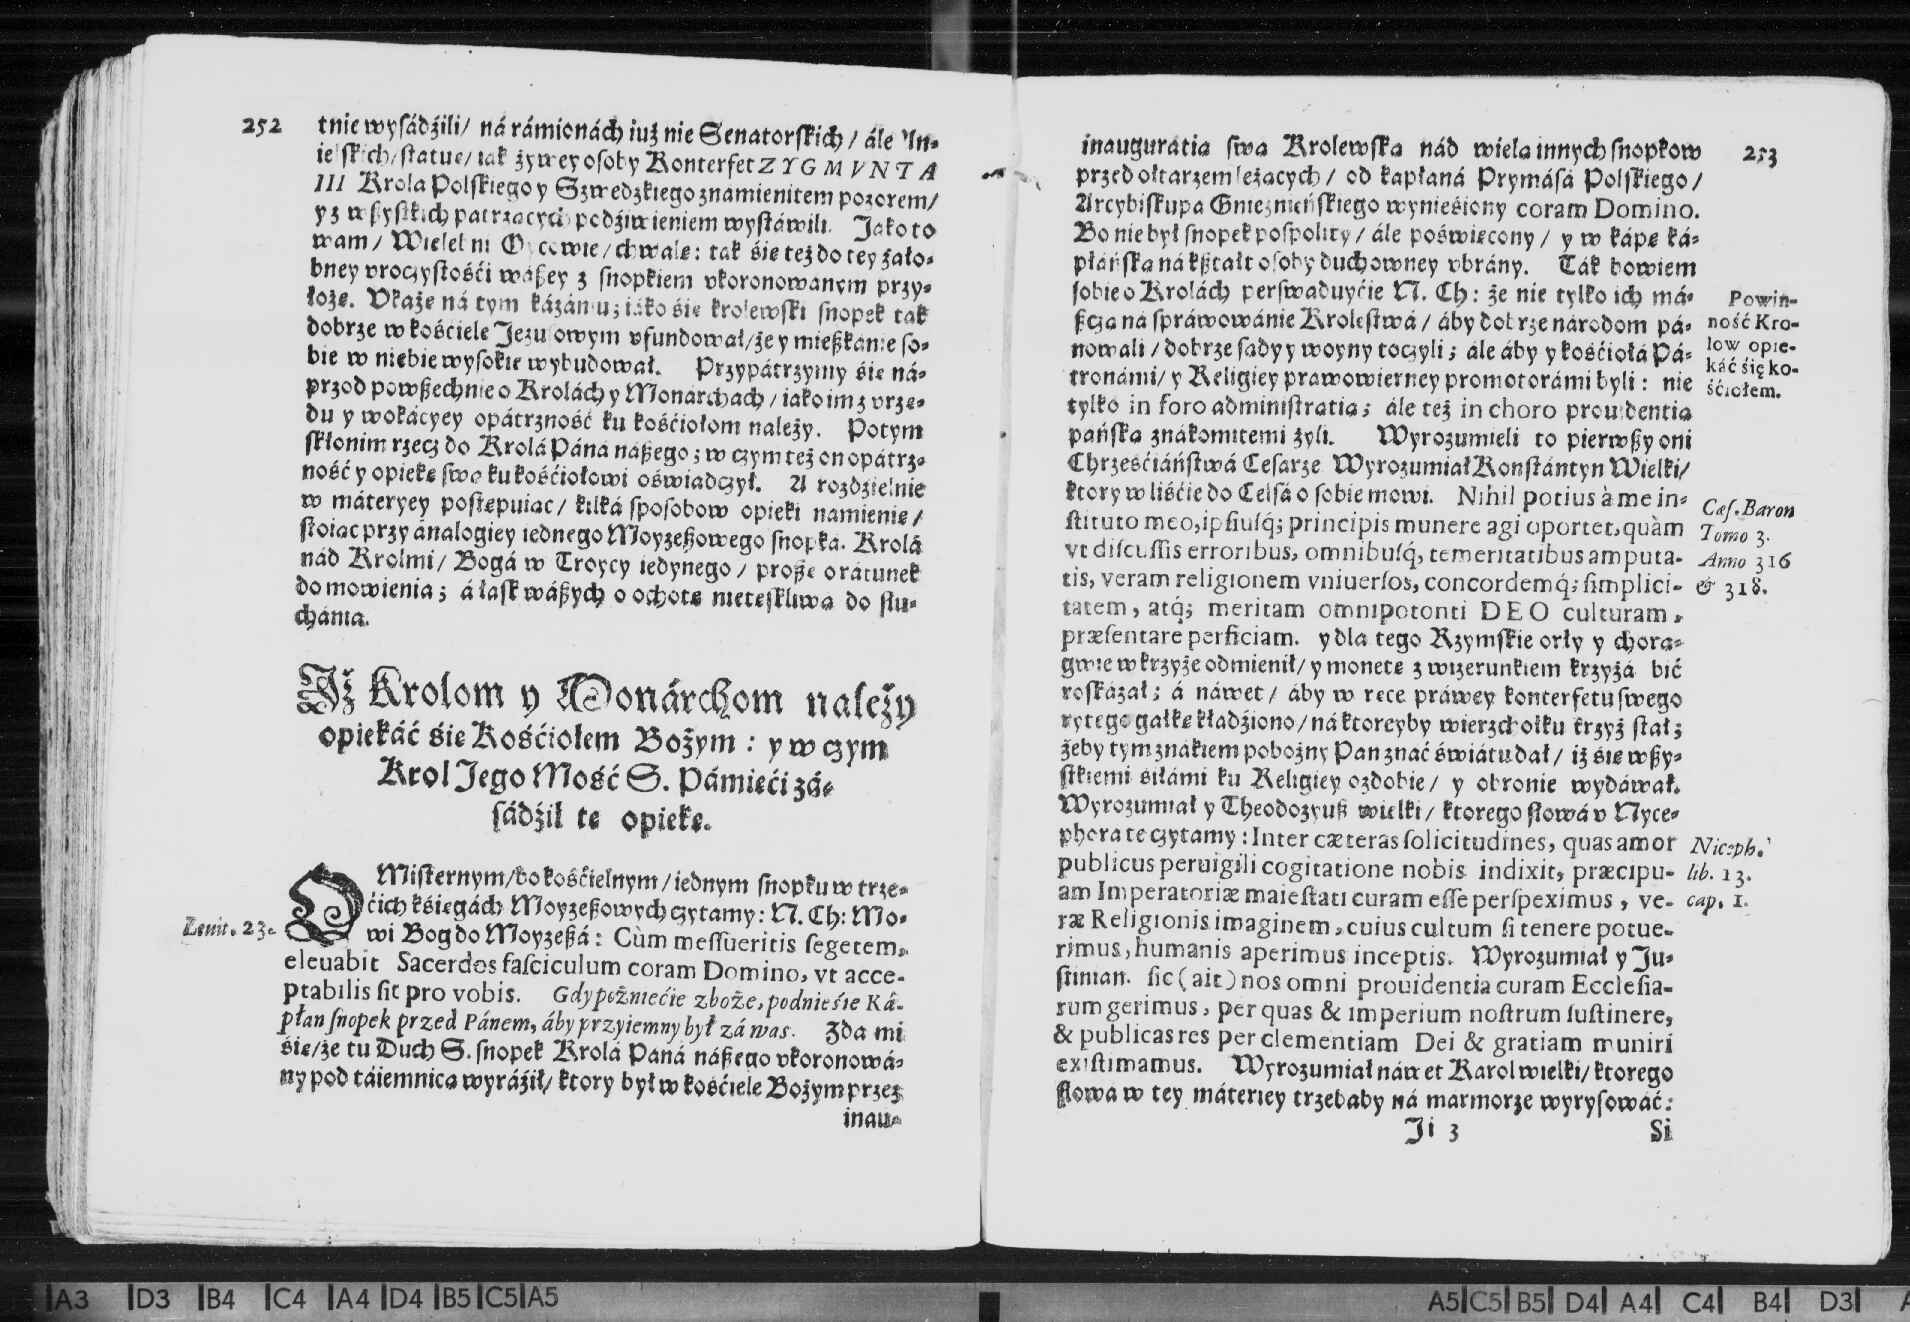 252
tnie wysádźili/ ná rámionách iuż nie Senatorskich/ ále An-
ielskich/statue/iak żywey osoby Konterfet ZYGMVNTA
III Krola Polskiego y Szwedzkiego znamienitem pozorem/
y z wßystkich patrzących podźiwieniem wystáwili. Jako to
wam/ Wielebni Oycowie/chwalę: tak śie też do tey żało-
bney vroczystośći wáßey z snopkiem vkoronowanym przy-
łożę. Vkażę ná tym kázániu; iáko śie krolewski snopek tak
dobrze w kośćiele Jezusowym vfundował/że y mießkánie so-
bie w niebie wysokie wybudował. Przypátrzymy śie ná-
przod powßechnie o Krolách y Monarchach/ iako im z vrzę-
du y wokácyey opátrzność ku kośćiołom należy. Potym
skłonim rzecz do Krolá Páná nászego; w czym też on opátrz-
ność y opiekę swą ku kośćiołowi oświadczył. A rozdzielnie
w máteryey postępuiąc/ kilká sposobow opieki namienię/
stoiąc przy ánalogiey iednego Moyzeßowego snopka. Krolá
nád Krolmi/ Bogá w Troycy iedynego/ proßę o rátunek
do mowienia; á łásk wáßych o ochotę nietęskliwą do słu-
chánia.
Jż Krolom y Monárchom należy
opiekáć śie Kośćiołem Bożym: y w czym
Krol Jego Mość S. Pámięći zá-
sádźił tę opiekę.
O Misternym/bo kośćielnym/iednym snopku w trze-
ćich kśięgách Moyzeßowych czytamy: N. Ch: Mo-
Leuit. 23.
wi Bog do Moyzeßá: Cùm messueritis segetem,
eleuabit Sacerdos fasciculum coram Domino, vt acce-
ptabilis sit pro vobis. Gdy pożniećie zboże, podnieśie Ká-
płan snopek przed Pánem, áby przyiemny był zá was. Zda mi
śię/że tu Duch S. snopek Krolá Paná náßego vkoronowá-
ny pod táiemnicą wyráźił/ ktory był w kośćiele Bożym przez
inau-
253
inauguratią swą Krolewską nád wiela innych snopkow
przed ołtarzem leżących/ od kapłaná Prymásá Polskiego/
Arcybiskupa Gnieznieńskiego wynieśiony coram Domino.
Bo nie był snopek pospolity/ ále poświęcony/ y w kápę ká-
płáńską ná kßtałt osoby duchowney vbrány. Ták bowiem
sobie o Krolách perswaduyćie N. Ch: że nie tylko ich má-
Powin-
ność Kro-
low opie-
káć się ko-
śćiołem.
ßczą ná spráwowánie Krolestwá/ áby dobrze narodom pá-
nowali/ dobrze sądy y woyny toczyli; ále áby y kośćiołá Pá-
tronámi/ y Religiey prawowierney promotorámi byli: nie
tylko in foro administratią; ále też in choro prouidentią
pańską znákomitemi żyli. Wyrozumieli to pierwßy oni
Chrześćiáństwá Cesarze Wyrozumiał Konstántyn Wielki/
ktory w liśćie do Celsá o sobie mowi. Nihil potius à me in-
Cæs. Baron
Tomo 3.
Anno 316
& 318.
stituto meo, ipsiusq́; principis munere agi oportet, quàm
vt discussis erroribus, omnibusq́, temeritatibus amputa-
tis, veram religionem vniuersos, concordemq́; simplici-
tatem, atq́; meritam omnipotonti DEO culturam,
præsentare perficiam. y dla tego Rzymskie orły y chorą-
gwie w krzyże odmienił/ y monetę z wizerunkiem krzyżá bić
roskázał; á náwet/ áby w ręce práwey konterfetu swego
rytego gałkę kładźiono/ ná ktoreyby wierzchołku krzyż stał;
żeby tym znákiem pobożny Pan znáć świátu dał/ iż śię wßy-
stkiemi śiłámi ku Religiey ozdobie/ y obronie wydáwał.
Wyrozumiał y Theodozyuß wielki/ ktorego słowá v Nyce-
phora te czytamy: Inter cæteras solicitudines, quas amor
Niceph.
lib. 13.
cap. 1.
publicus peruigili cogitatione nobis indixit, præcipu-
am Imperatoriæ maiestati curam esse perspeximus, ve-
ræ Religionis imaginem, cuius cultum si tenere potue-
rimus, humanis aperimus inceptis. Wyrozumiał y Ju-
stinian. sic (ait) nos omni prouidentia curam Ecclesia-
rum gerimus, per quas & imperium nostrum sustinere,
& publicas res per clementiam Dei & gratiam muniri
existimamus. Wyrozumiał náwet Karol wielki/ ktorego
słowa w tey máteriey trzebaby ná marmorze wyrysowáć:
Ji 3
Si